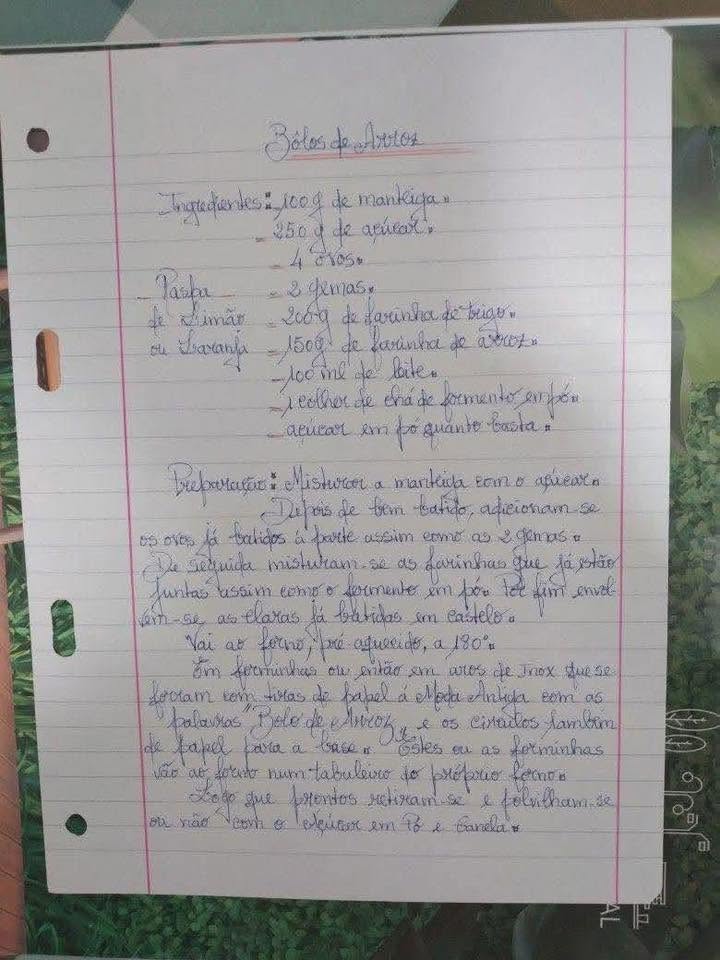 Bôlos de Arroz
Ingredientes: 100g de manteiga.
- 250 g de açúcar.
- 4 ovos.
- Raspa - - 2 gemas.
de Limão - 200 g de farinha de trigo.
ou Laranja - 150g de farinha de arroz.
- 100 ml de leite.
- 1 colher de chá de formento em pó.
- açúcar em pó quanto basta.
Preparação: Misturar a manteiga com o açúcar.
Depois de bem batido, adicionam-se
os ovos já batidos à parte assim como as 2 gemas.
De seguida misturam-se as farinhas que já estão
juntas assim como o formento em pó. Por fim envol-
vem-se as claras já batidas em castelo.
Vai ao forno, pré-aquecido, a 180°.
Em forminhas ou então em aros de Inox que se
forram com tiras de papel á Moda Antiga com as
palavras "Bolo de Arroz", e os círculos também
de papel para a base. Estes ou as forminhas
vão ao forno num tabuleiro do próprio forno.
Logo que prontos retiram-se e polvilham-se
ou não com o açúcar em Pó e Canela.
AL